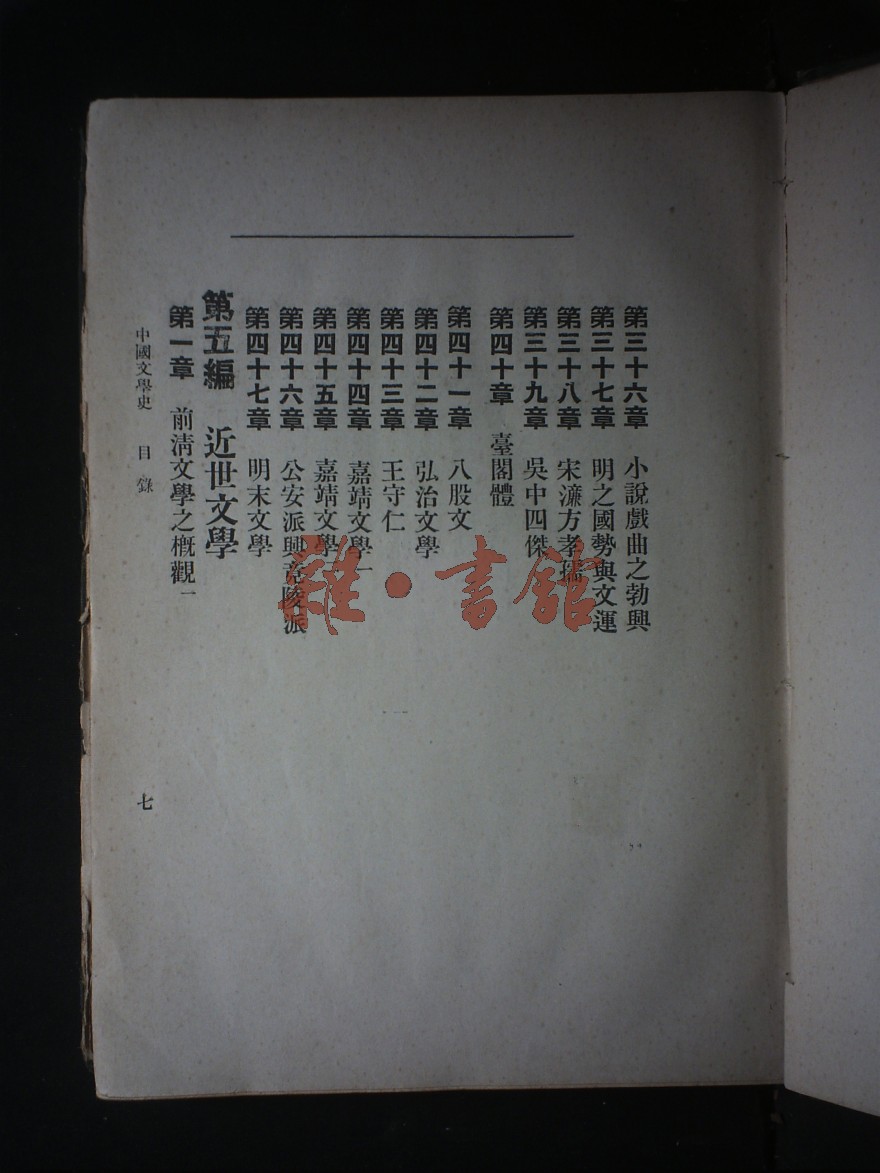 第三十六章 小說戲曲之勃興
第三十七章 明之國勢與文運
第三十八章 宋濂方孝孺
第三十九章 吳中四傑
第四十章 臺閣體
第四十一章 八股文
第四十二章 弘治文學
第四十三章 王守仁
第四十四章 嘉靖文學一
第四十五章 嘉靖文學二
第四十六章 公安派與竟陵派
第四十七章 明末文學
第五編 近世文學
第一章 前淸文學之槪觀一
中國文學史 目錄
七
雜·書館